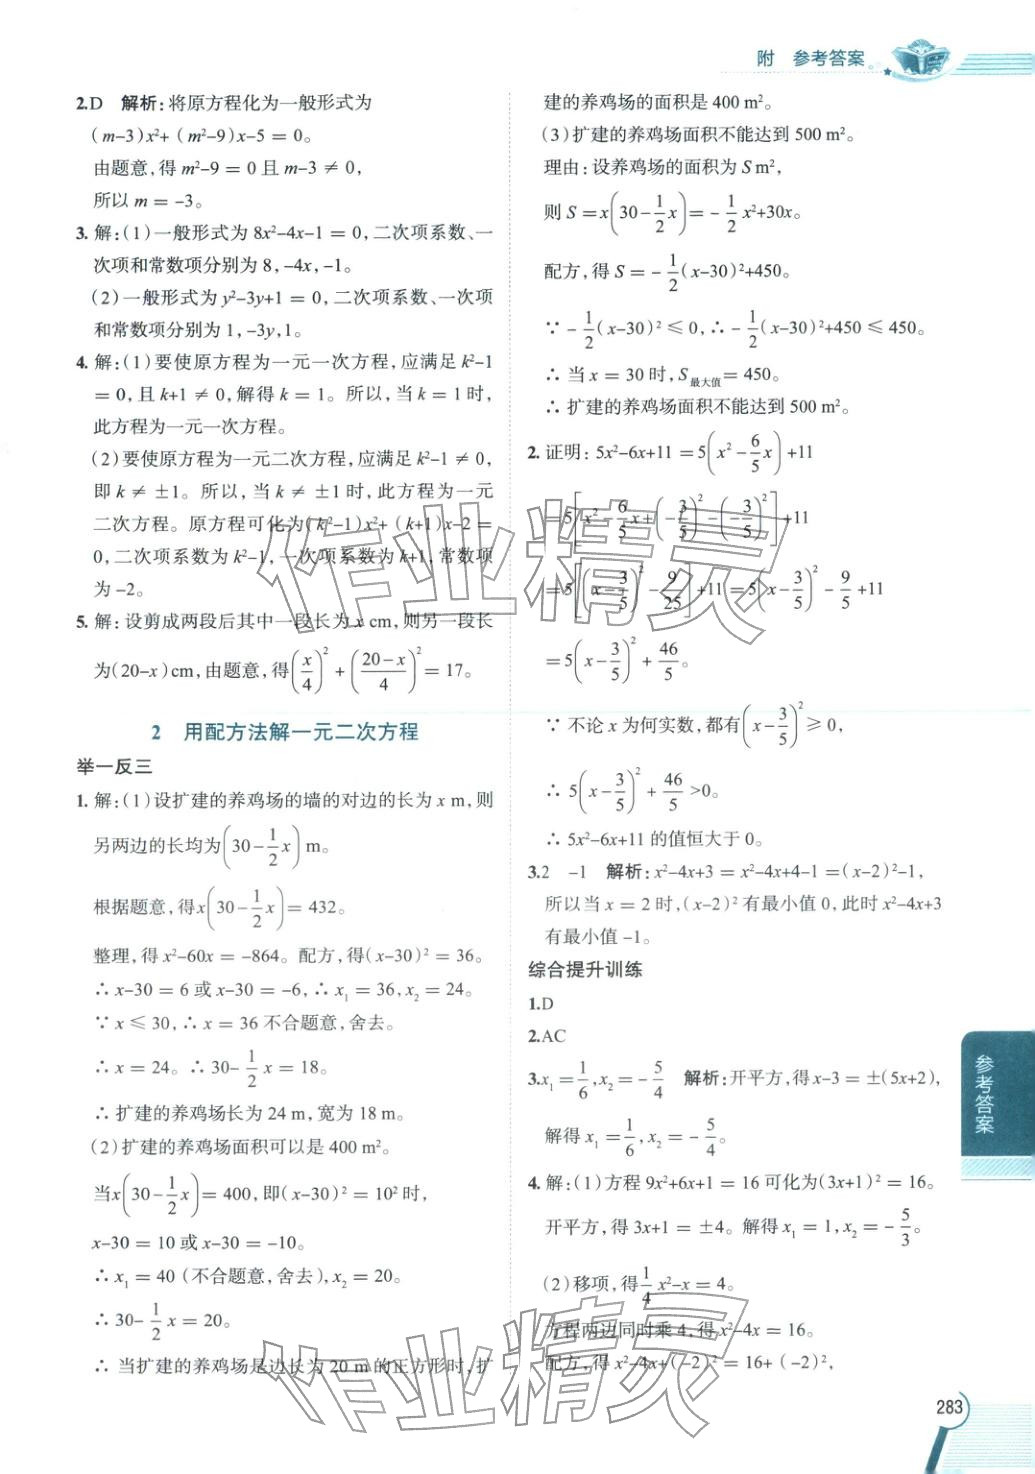 附 参考答案
2.D 解析:将原方程化为一般形式为
(m-3)x²+(m²-9)x-5=0。
由题意,得 m²-9=0且 m-3≠0,
所以 m=-3。
3. 解:(1)一般形式为 8x²-4x-1=0,二次项系数、一
次项和常数项分别为 8,-4x,-1。
(2)一般形式为 y²-3y+1=0,二次项系数、一次项
和常数项分别为 1,-3y,1。
4. 解:(1)要使原方程为一元一次方程,应满足 k²-1
=0,且 k+1≠0,解得 k=1。所以,当 k=1时,
此方程为一元一次方程。
(2)要使原方程为一元二次方程,应满足 k²-1≠0,
即 k≠±1。所以,当 k≠±1时,此方程为一元
二次方程。原方程可化为(k²-1)x²+(k+1)x-2=
0,二次项系数为 k²-1,一次项系数为 k+1,常数项
为-2。
5. 解:设剪成两段后其中一段长为 x cm,则另一段长
为(20-x)cm,由题意,得(x/4)²+((20-x)/4)²=17。
2 用配方法解一元二次方程
举一反三
1. 解:(1)设扩建的养鸡场的墙的对边的长为 x m,则
另两边的长均为(30-1/2x)m。
根据题意,得x(30-1/2x)=432。
整理,得 x²-60x=-864。配方,得(x-30)²=36。
∴ x-30=6或 x-30=-6,∴ x₁=36,x₂=24。
∵ x≤30,∴ x=36不合题意,舍去。
∴ x=24。∴ 30-1/2x=18。
∴ 扩建的养鸡场长为 24 m,宽为 18 m。
(2)扩建的养鸡场面积可以是 400 m²。
当x(30-1/2x)=400,即(x-30)²=10²时,
x-30=10或 x-30=-10。
∴ x₁=40(不合题意,舍去),x₂=20。
∴ 30-1/2x=20。
∴ 当扩建的养鸡场是边长为 20 m 的正方形时,扩
建的养鸡场的面积是 400 m²。
(3)扩建的养鸡场面积不能达到 500 m²。
理由:设养鸡场的面积为 S m²,
则 S=x(30-1/2x)=-1/2x²+30x。
配方,得 S=-1/2(x-30)²+450。
∵ -1/2(x-30)²≤0,∴ -1/2(x-30)²+450≤450。
∴ 当 x=30时,S最大值=450。
∴ 扩建的养鸡场面积不能达到 500 m²。
2. 证明:5x²-6x+11=5(x²-6/5x)+11
=5[x²-6/5x+(-3/5)²-(-3/5)²]+11
=5[(x-3/5)²-9/25]+11=5(x-3/5)²-9/5+11
=5(x-3/5)²+46/5。
∵ 不论 x 为何实数,都有(x-3/5)²≥0,
∴ 5(x-3/5)²+46/5>0。
∴ 5x²-6x+11的值恒大于0。
3.2 -1 解析:x²-4x+3=x²-4x+4-1=(x-2)²-1,
所以当 x=2时,(x-2)²有最小值0,此时 x²-4x+3
有最小值-1。
综合提升训练
1.D
2.AC
3.x₁=1/6,x₂=-5/4 解析:开平方,得 x-3=±(5x+2),
解得 x₁=1/6,x₂=-5/4。
4. 解:(1)方程 9x²+6x+1=16可化为(3x+1)²=16。
开平方,得 3x+1=±4。解得 x₁=1,x₂=-5/3。
(2)移项,得1/4x²-x=4。
方程两边同时乘4,得 x²-4x=16。
配方,得 x²-4x+(-2)²=16+(-2)²,
参考答案
283
作业精灵
作业精灵